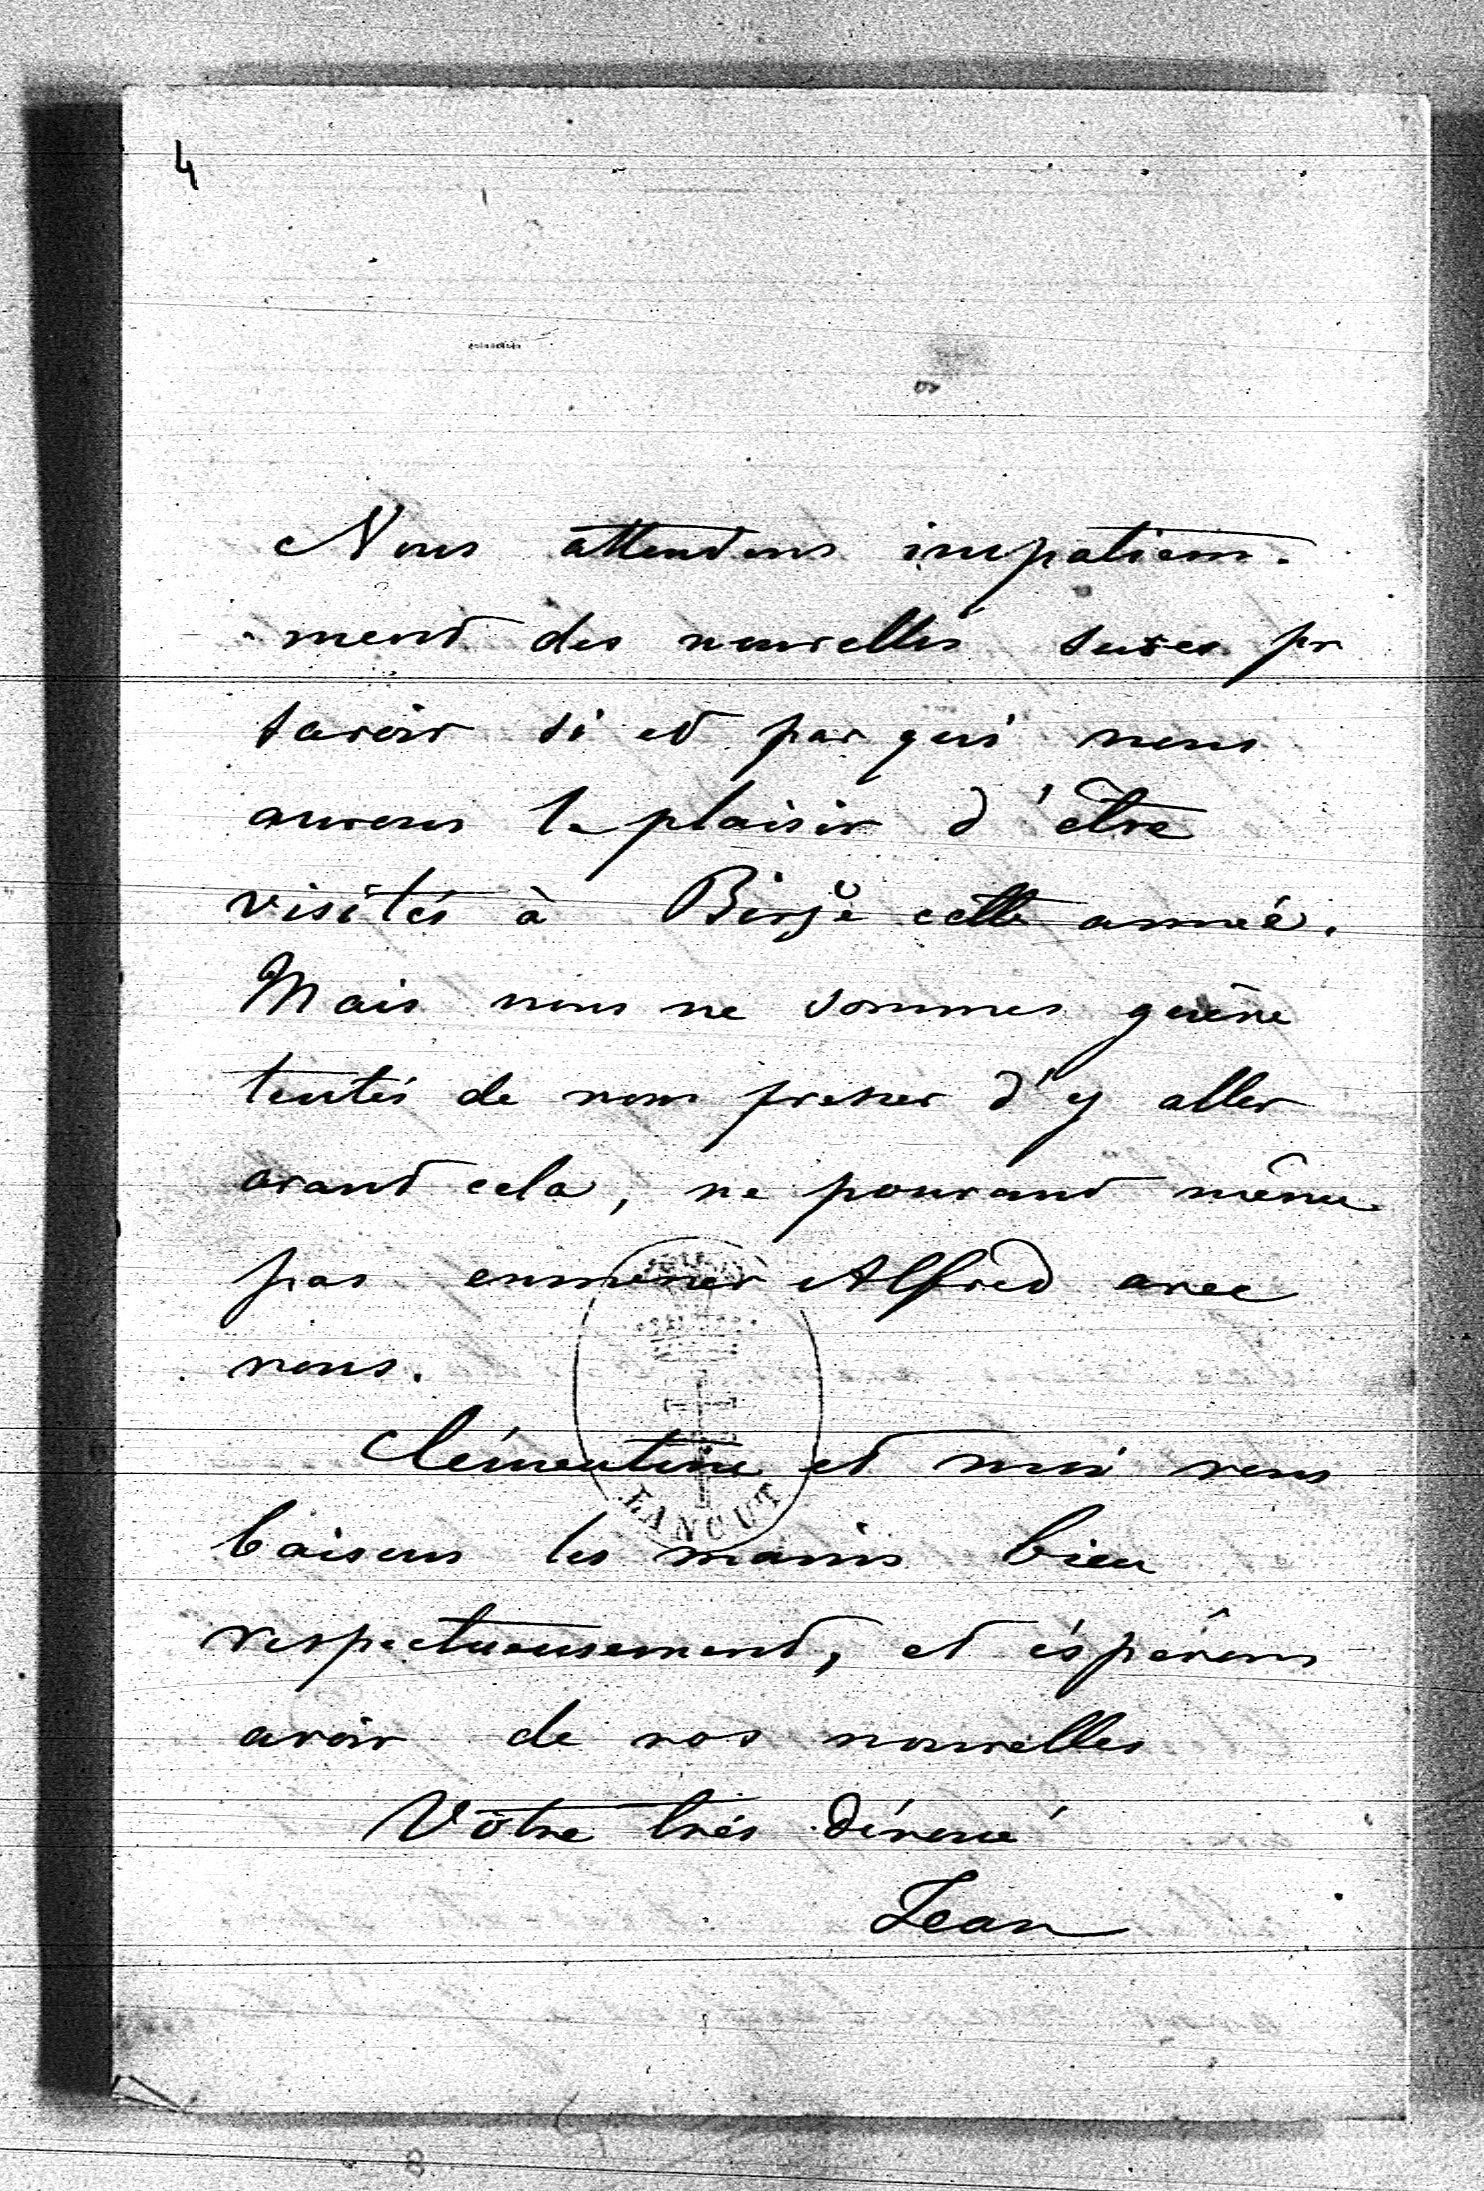 4
Nous attendons impatiem-
ment des nouvelles sures pr
savoir si et par qui nous
aurons le plaisir d'être
visités à Birže cette année.
Mais nous ne sommes guère
tentés de nous presser d'y aller
avant cela, ne pouvant même
pas emmener Alfred avec
nous.
Clémentine et moi vous
baisons les mains bien
respectueusement, et éspérons
avoir de vos nouvelles
Vôtre très dévoué
Jean
ŁAŃCUT